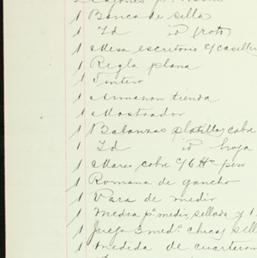 2 Cajones p.
1 Banca de silla
1 Id id rota
1 Mesa escritorio c/ casiller
1 Regla plana
1 Tintero
1 Armazon tienda
1 Mostrador
1 Balanzas platillas cobre
1 Id id hoja
1 Marco cobre c/ 6 peso
1 Romana de gancho
1 Vara de medir
1 Medida pa medir, sellada y 1
1 Juego 3 medas chicas sell
1 medida de cuarteron